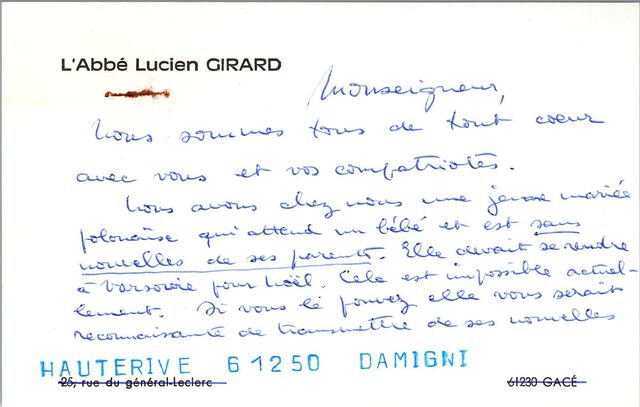 L'Abbé Lucien GIRARD
Monseigneur,
Nous sommes tous de tout coeur
avec vous et vos compatriotes.
Nous avons chez nous une jeune mariée
polonaise qui attend un bébé et est sans
nouvelles de ses parents. Elle devait se rendre
à Varsovie pour Noël. Cela est impossible actuel-
lement. Si vous le pouvez elle vous serait
reconnaissante de transmettre de ses nouvelles
HAUTERIVE 61250 DAMIGNI
25, rue du général-Leclerc 61230 GACÉ